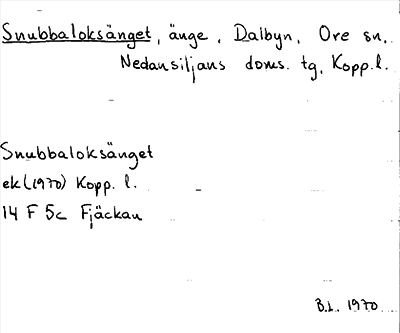 Snubbaloksänget, änge, Dalbyn, Ore sn.
Nedansiljans doms. tg, Kopp.l.
Snubbaloksänget
ek (1970) Kopp. l.
14 F 5c Fjäckan
B.L. 1970